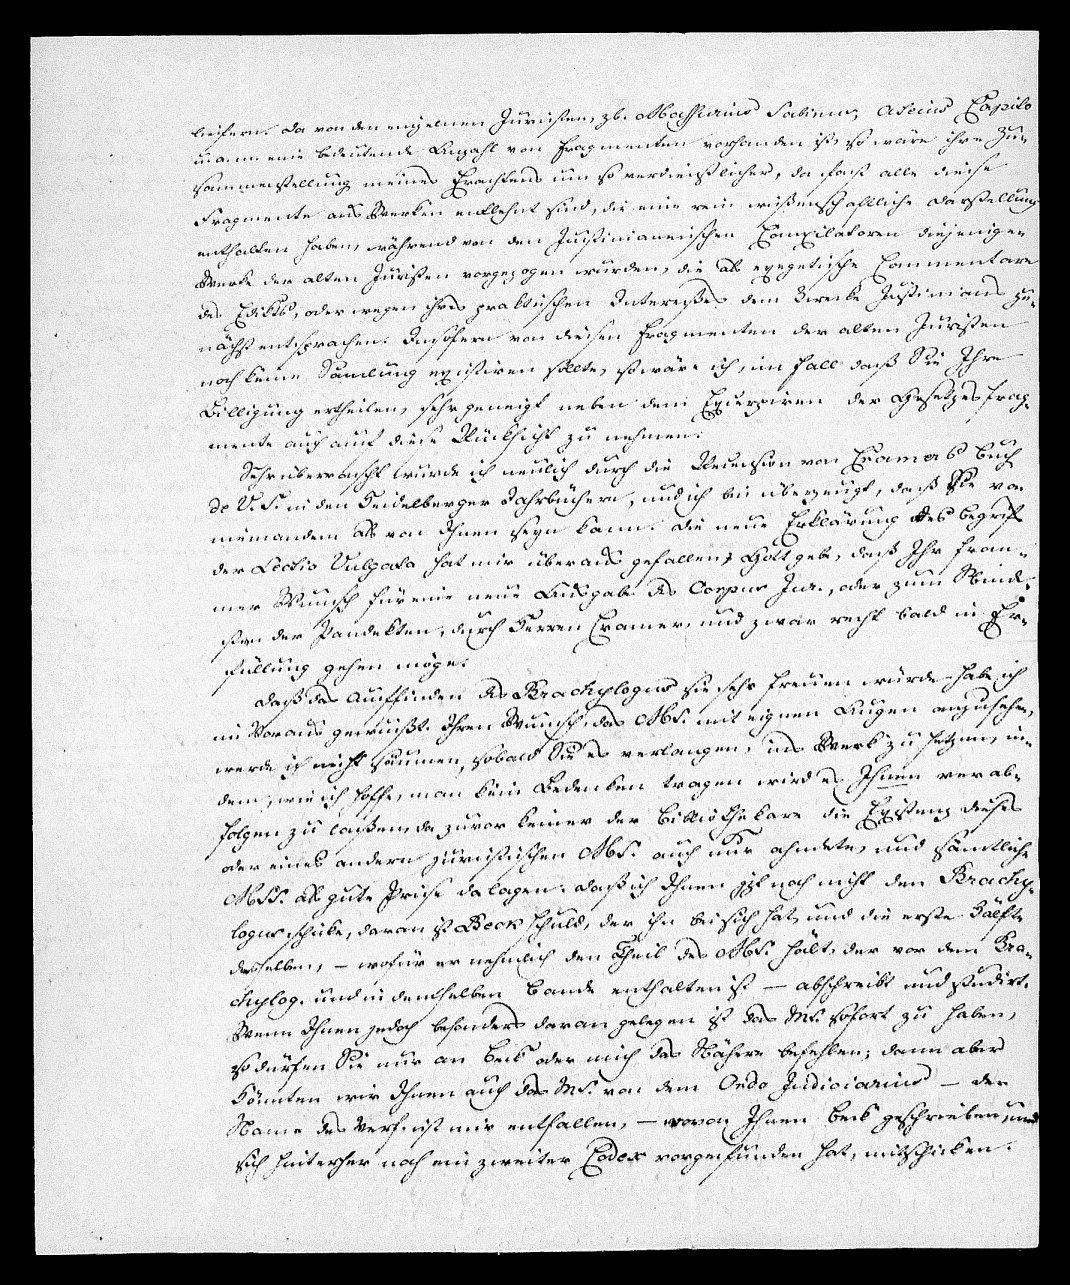 liefern. Da von den einzelnen Juristen, zb. Massurius Sabinus, Ateius Capito
u. ann. eine bedeutende Anzahl von Fragmenten vorhanden ist, so wäre ihre Zu-
sammenstellung meines Erachtens um so verdienstlicher, da fast alle diese
Fragmente aus Werken entlehnt sind, die eine rein wißenschaftliche Darstellung
enthalten haben, während von den Justinianeischen Compilatoren diejenigen
Werke der alten Juristen vorgezogen wurden, die als exegetische Commentare
des Edikts, oder wegen ihres praktischen Interesses dem Zwecke Justinians zu-
nächst entsprachen. Insofern von diesen Fragmenten der alten Juristen
noch keine Samlung existiren sollte, so wäre ich, im Fall daß Sie Ihre
Billigung ertheilen, sehr geneigt neben dem Excerpiren der Gesetzesfrag-
mente auch auf diese Rücksicht zu nehmen.
Sehr überrascht wurde ich neulich durch die Recension von Cramers Buch
de V. S. in den Heidelberger Jahrbüchern, und ich bin überzeugt, daß Sie von
niemandem als von Ihnen seyn kann. Die neue Erklärung des Begriffs
der Lectio Vulgata hat mir überaus gefallen; Gott gebe, daß Ihr from-
mer Wunsch für eine neue Ausgabe des Corpus Jur., oder zum Minde-
sten der Pandekten, durch Herren Cramer, und zwar recht bald in Er-
füllung gehen möge.
Daß das Auffinden des Brachylogus sie sehr freuen würde habe ich
im Voraus gewußt. Ihren Wunsch, das MS. mit eignen Augen anzusehen,
werde ich nicht säumen, sobald Sie es verlangen, ins Werk zu setzen, in-
dem, wie ich hoffe, man kein Bedenken tragen wird es Ihnen verab-
folgen zu laßen, da zuvor keiner der Bibliothekare die Existenz dieses
oder eines andern juristischen MS. auch nur ahndete, und sämtliche
MSS. als gute Prise da lagen. Daß ich Ihnen jzt noch nicht den Brachy-
logus schicke, daran ist Beck schuld, der ihn bei sich hat, und die erste Hälfte
desselben, – wofür er nehmlich den Theil des MS. hält, der vor dem Bra-
chylog. und in demselben Bande enthalten ist – abschreibt und studirt.
Wenn Ihnen jedoch besonders daran gelegen ist das MS. sofort zu haben,
so dürfen Sie nur an Beck oder mich das Nähere befehlen; dann aber
könnten wir Ihnen auch das MS. von dem Ordo Judiciarius – der
Name des Verf. ist mir entfallen, – wovon Ihnen Beck geschrieben, und
sich hinterher noch ein zweiter Codex vorgefunden hat, mitschicken.